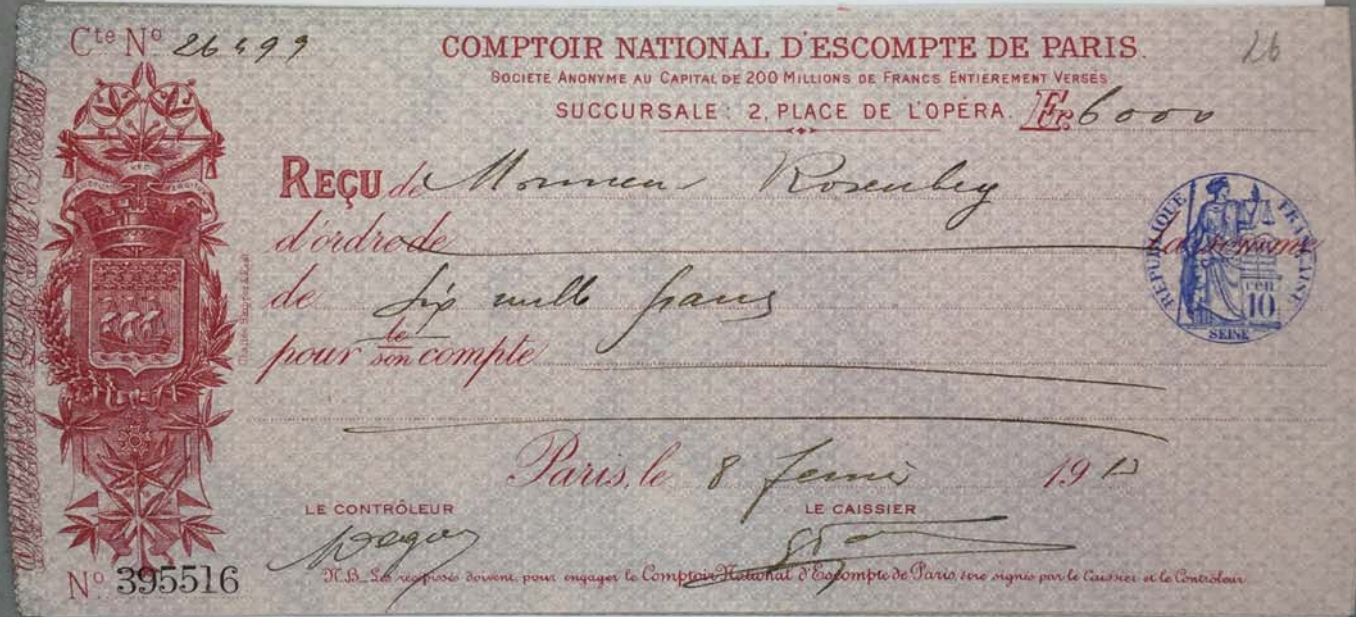 Cte No 26499
26
COMPTOIR NATIONAL D'ESCOMPTE DE PARIS.
SOCIÉTÉ ANONYME AU CAPITAL DE 200 MILLIONS DE FRANCS ENTIÈREMENT VERSÉS
SUCCURSALE : 2, PLACE DE L'OPÉRA. Fr. 6000
REÇU de Monsieur Rosenberg
d'ordre de la somme
de Six mille francs
pour le son compte
RÉPUBLIQUE FRANÇAISE
10
SEINE
Paris, le 8 19
LE CONTRÔLEUR LE CAISSIER
No 395516 N.B. Les récépissés doivent, pour engager le Comptoir National d'Escompte de Paris, être signés par le Caissier et le Contrôleur